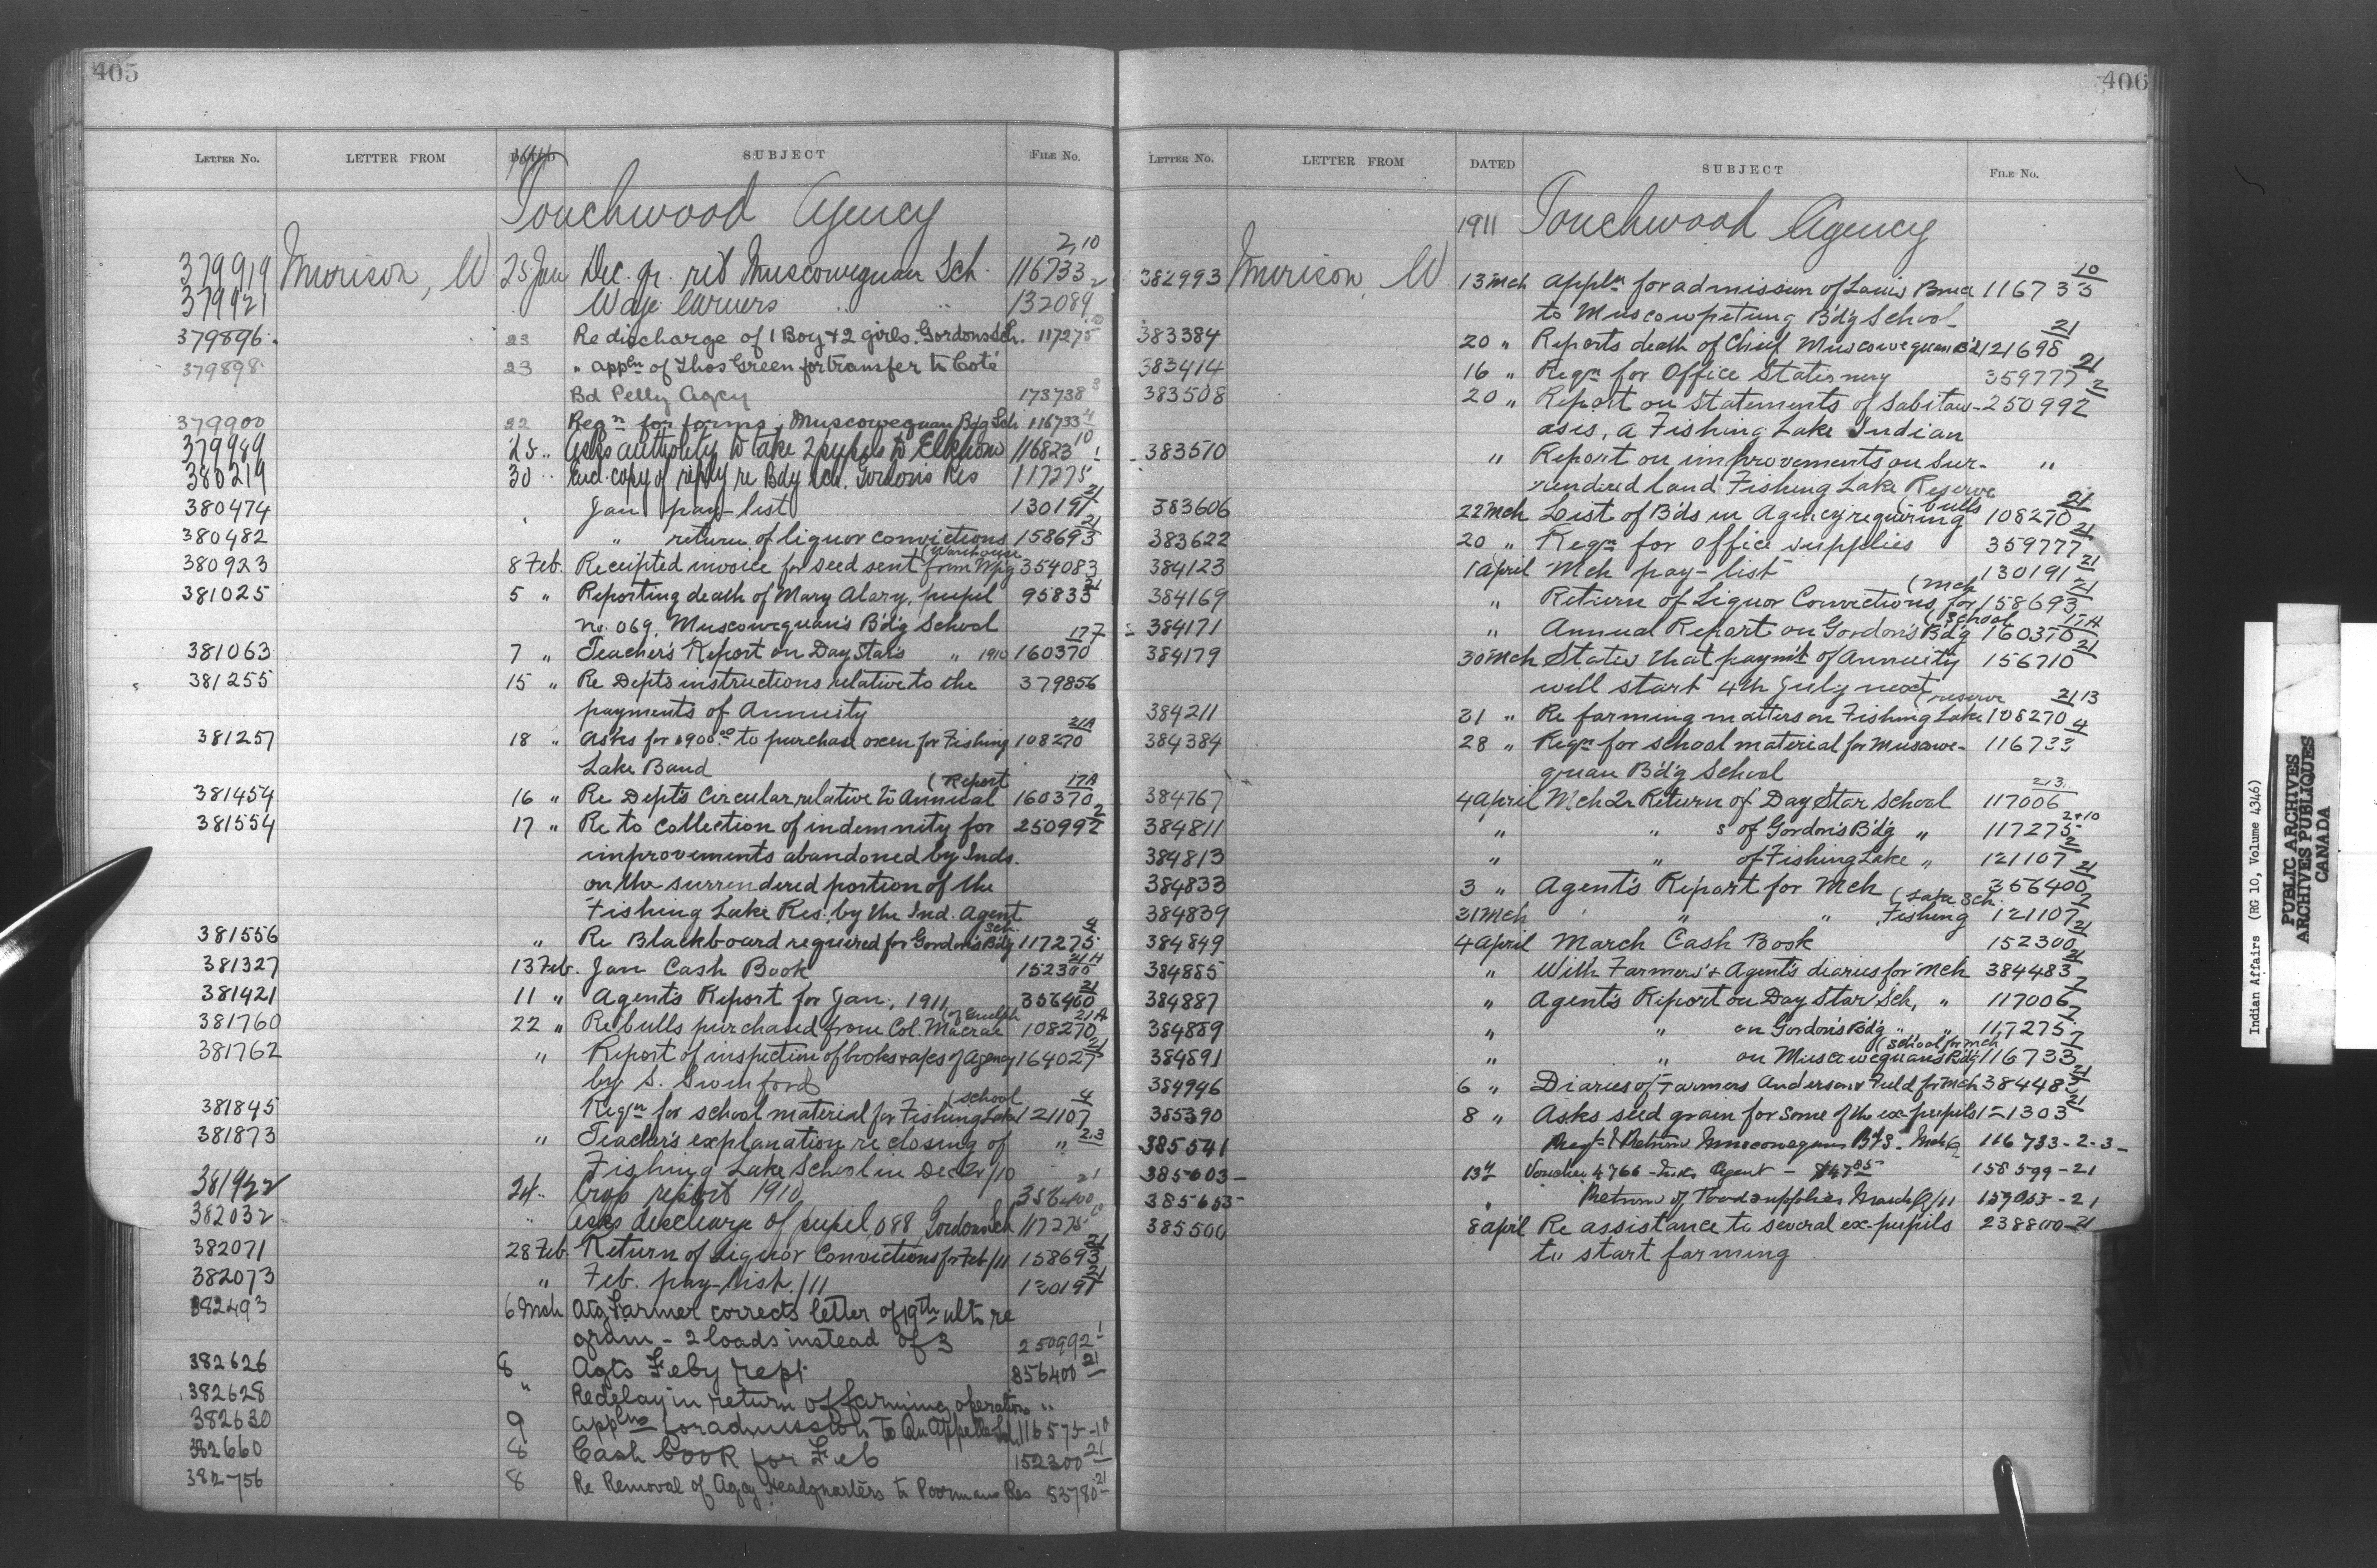 405
LETTER No. LETTER FROM DATED SUBJECT FILE No.
1911
Touchwood Agency
2,10
379919 Murison, W 25 Jan Dec. qr. ret Muscowequan Sch. 116733
379921 " Wage Earners " " 132089 2
379896 23 Re discharge of 1 Boy + 2 girls. Gordons Sch. 117275 10
379898 23 " appln of Thos Green for transfer to Coté
Bd Pelly Agcy 173738 3
379900 22 Reqn for forms, Muscowequan Bdg Sch 116733 4
379989 25 " Asks authority to take 2 pupils to Elkhorn 116823 10
380219 30 " Encl. copy of reply re Bdg Sch. Gordons Res 117275 1
380474 " Jan pay-list 130191 21
380482 " return of liquor convictions 158693 21
(Warehouse
380923 8 Feb. Receipted invoice for seed sent from Wpg 354083
381025 5 " Reporting death of Mary Alary, pupil 95833 21
No. 069, Muscowequan's B'd'g School
381063 7 " Teacher's Report on Day Stars " 1910 160370 177
381255 15 " Re Depts instructions relative to the 379856
payments of Annuity
381257 18 " Asks for $900.00 to purchase oxen for Fishing 108270 21A
Lake Band
(Report
381454 16 " Re Dept's Circular, relative to Annual 160370 17A
381554 17 " Re to collection of indemnity for 250992 2
improvements abandoned by Inds.
on the surrendered portion of the
Fishing Lake Res. by the Ind. Agent
Sch.
381556 " Re Blackboard required for Gordon's Bdg 117275 4
381327 13 Feb. Jan Cash Book 152300 21A
381421 11 " Agent's Report for Jan, 1911 356400 21
of Guelph
381760 22 " Re bulls purchased from Col. Macrae 108270 21A
381762 " Report of inspection of books & a/cs of Agency 164027 21
by S. Swinford
(school
381845 Reqn for school material for Fishing Lake 121107 4
381873 " Teacher's explanation re closing of " 2.3
Fishing Lake School in Dec Qr/10
381922 24 " Crop report 1910 356400 21
382032 " Asks discharge of pupil, 088, Gordons Sch 117275 10
382071 28 Feb. Return of Liquor Convictions for Feb/11 158693 21
382073 " Feb. pay-list /11 130191 21
382493 6 Mch Atg Farmer corrects letter of 19th ulto re
grain - 2 loads instead of 3 250992 1
382626 8 Agts Feby rept 356400 21
382628 " Re delay in return of farming operation "
382630 9 Applns for admission to Qu'Appelle Sch 116575-10
382660 8 Cash book for Feb 152300 21
382756 8 Re Removal of Agcy Headquarters to Poormans Res 53780 21
406
LETTER No. LETTER FROM DATED SUBJECT FILE No.
1911 Touchwood Agency
382993 Murison, W 13 Mch Appln for admission of Louis 116733 10
to Muscowpetung B'd'g School
383384 20 " Reports death of Chief Muscowequan Bd 121698 21
383414 16 " Reqn for Office Stationery 359777 21
383508 20 " Report on Statements of Sabitaw- 250992 2
asis, a Fishing Lake Indian
383570 " Report on improvements on sur- "
rendered land Fishing Lake Reserve
(bulls
383606 22 Mch List of B'ds in Agency requiring 108270 21
383622 20 " Reqn for office supplies 359777 21
384123 1 April Mch pay-list 130191 21
(Mch
384169 " Return of Liquor Convictions for 158693 21
(School
384171 " Annual Report on Gordon's Bd'g 160370 17A
384179 30 Mch States that paym't of Annuity 156710 21
will start 4th July next
(reserve
384211 31 " Re farming matters on Fishing Lake 108270 21 13
384384 28 " Reqn for school material for Muscowe- 116733 4
quan Bd'g School
384767 4 April Mch Qr Return of Day Star School 117006 2.3
384811 " " s of Gordon's Bd'g " 117275 2+10
384813 " " of Fishing Lake " 121107 2
384833 3 " Agent's Report for Mch 356400 21
(Lake Sch.
384839 31 Mch " " " Fishing 121107 2
384849 4 April March Cash Book 152300 21
384885 " With Farmers' & Agents diaries for Mch 384483 21
384887 " Agent's Report on Day Star Sch, " 117006 7
384889 " " on Gordon's Bd'g " " 117275 7
(School for Mch
384891 " " on Muscowequan's Bd'g 116733 7
384946 6 " Diaries of Farmers Anderson & Field for Mch 384483 21
385390 8 " Asks seed grain for some of the ex-pupils 121303 21
385541 Reqt & Return Muscowequan B'd'S - Mch Q 116733-2-3-
385603- 13th Voucher 4766 - Inds Agent - $47.85 158599-21
385655 " Return of Food supplies March Q/11 159053-21
385500 8 April Re assistance to several ex-pupils 238800-21
to start farming
Indian Affairs (RG 10, Volume 4346)
PUBLIC ARCHIVES
ARCHIVES PUBLIQUES
CANADA